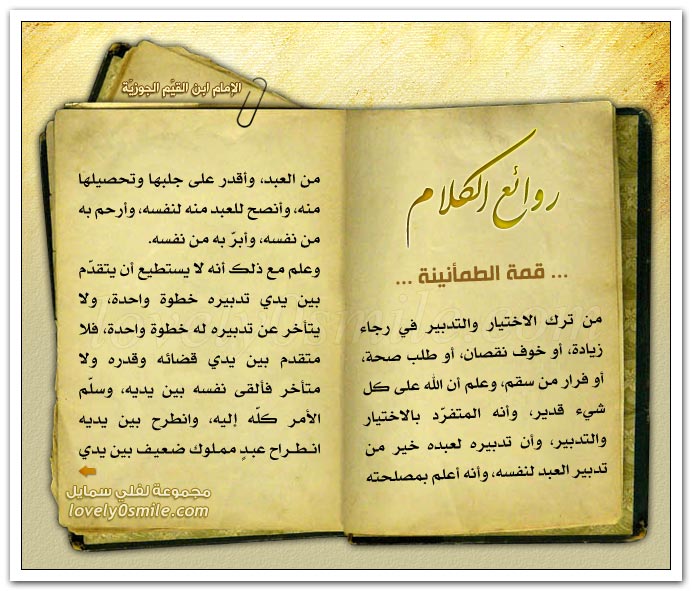 الإمام ابن القيّم الجوزيّة
روائع الكلام
... قمة الطمأنينة ...
من ترك الاختيار والتدبير في رجاء
زيادة، أو خوف نقصان، أو طلب صحة،
أو فرار من سقم، وعلم أن الله على كل
شيء قدير، وأنه المتفرّد بالاختيار
والتدبير، وأن تدبيره لعبده خير من
تدبير العبد لنفسه، وأنه أعلم بمصلحته
من العبد، وأقدر على جلبها وتحصيلها
منه، وأنصح للعبد منه لنفسه، وأرحم به
من نفسه، وأبرّ به من نفسه.
وعلم مع ذلك أنه لا يستطيع أن يتقدّم
بين يدي تدبيره خطوة واحدة، ولا
يتأخر عن تدبيره له خطوة واحدة، فلا
متقدم بين يدي قضائه وقدره ولا
متأخر فألقى نفسه بين يديه، وسلّم
الأمر كلّه إليه، وانطرح بين يديه
انطراح عبدٍ مملوك ضعيف بين يدي
مجموعة لفلي سمايل
lovely0smile.com
lovely0smile.com